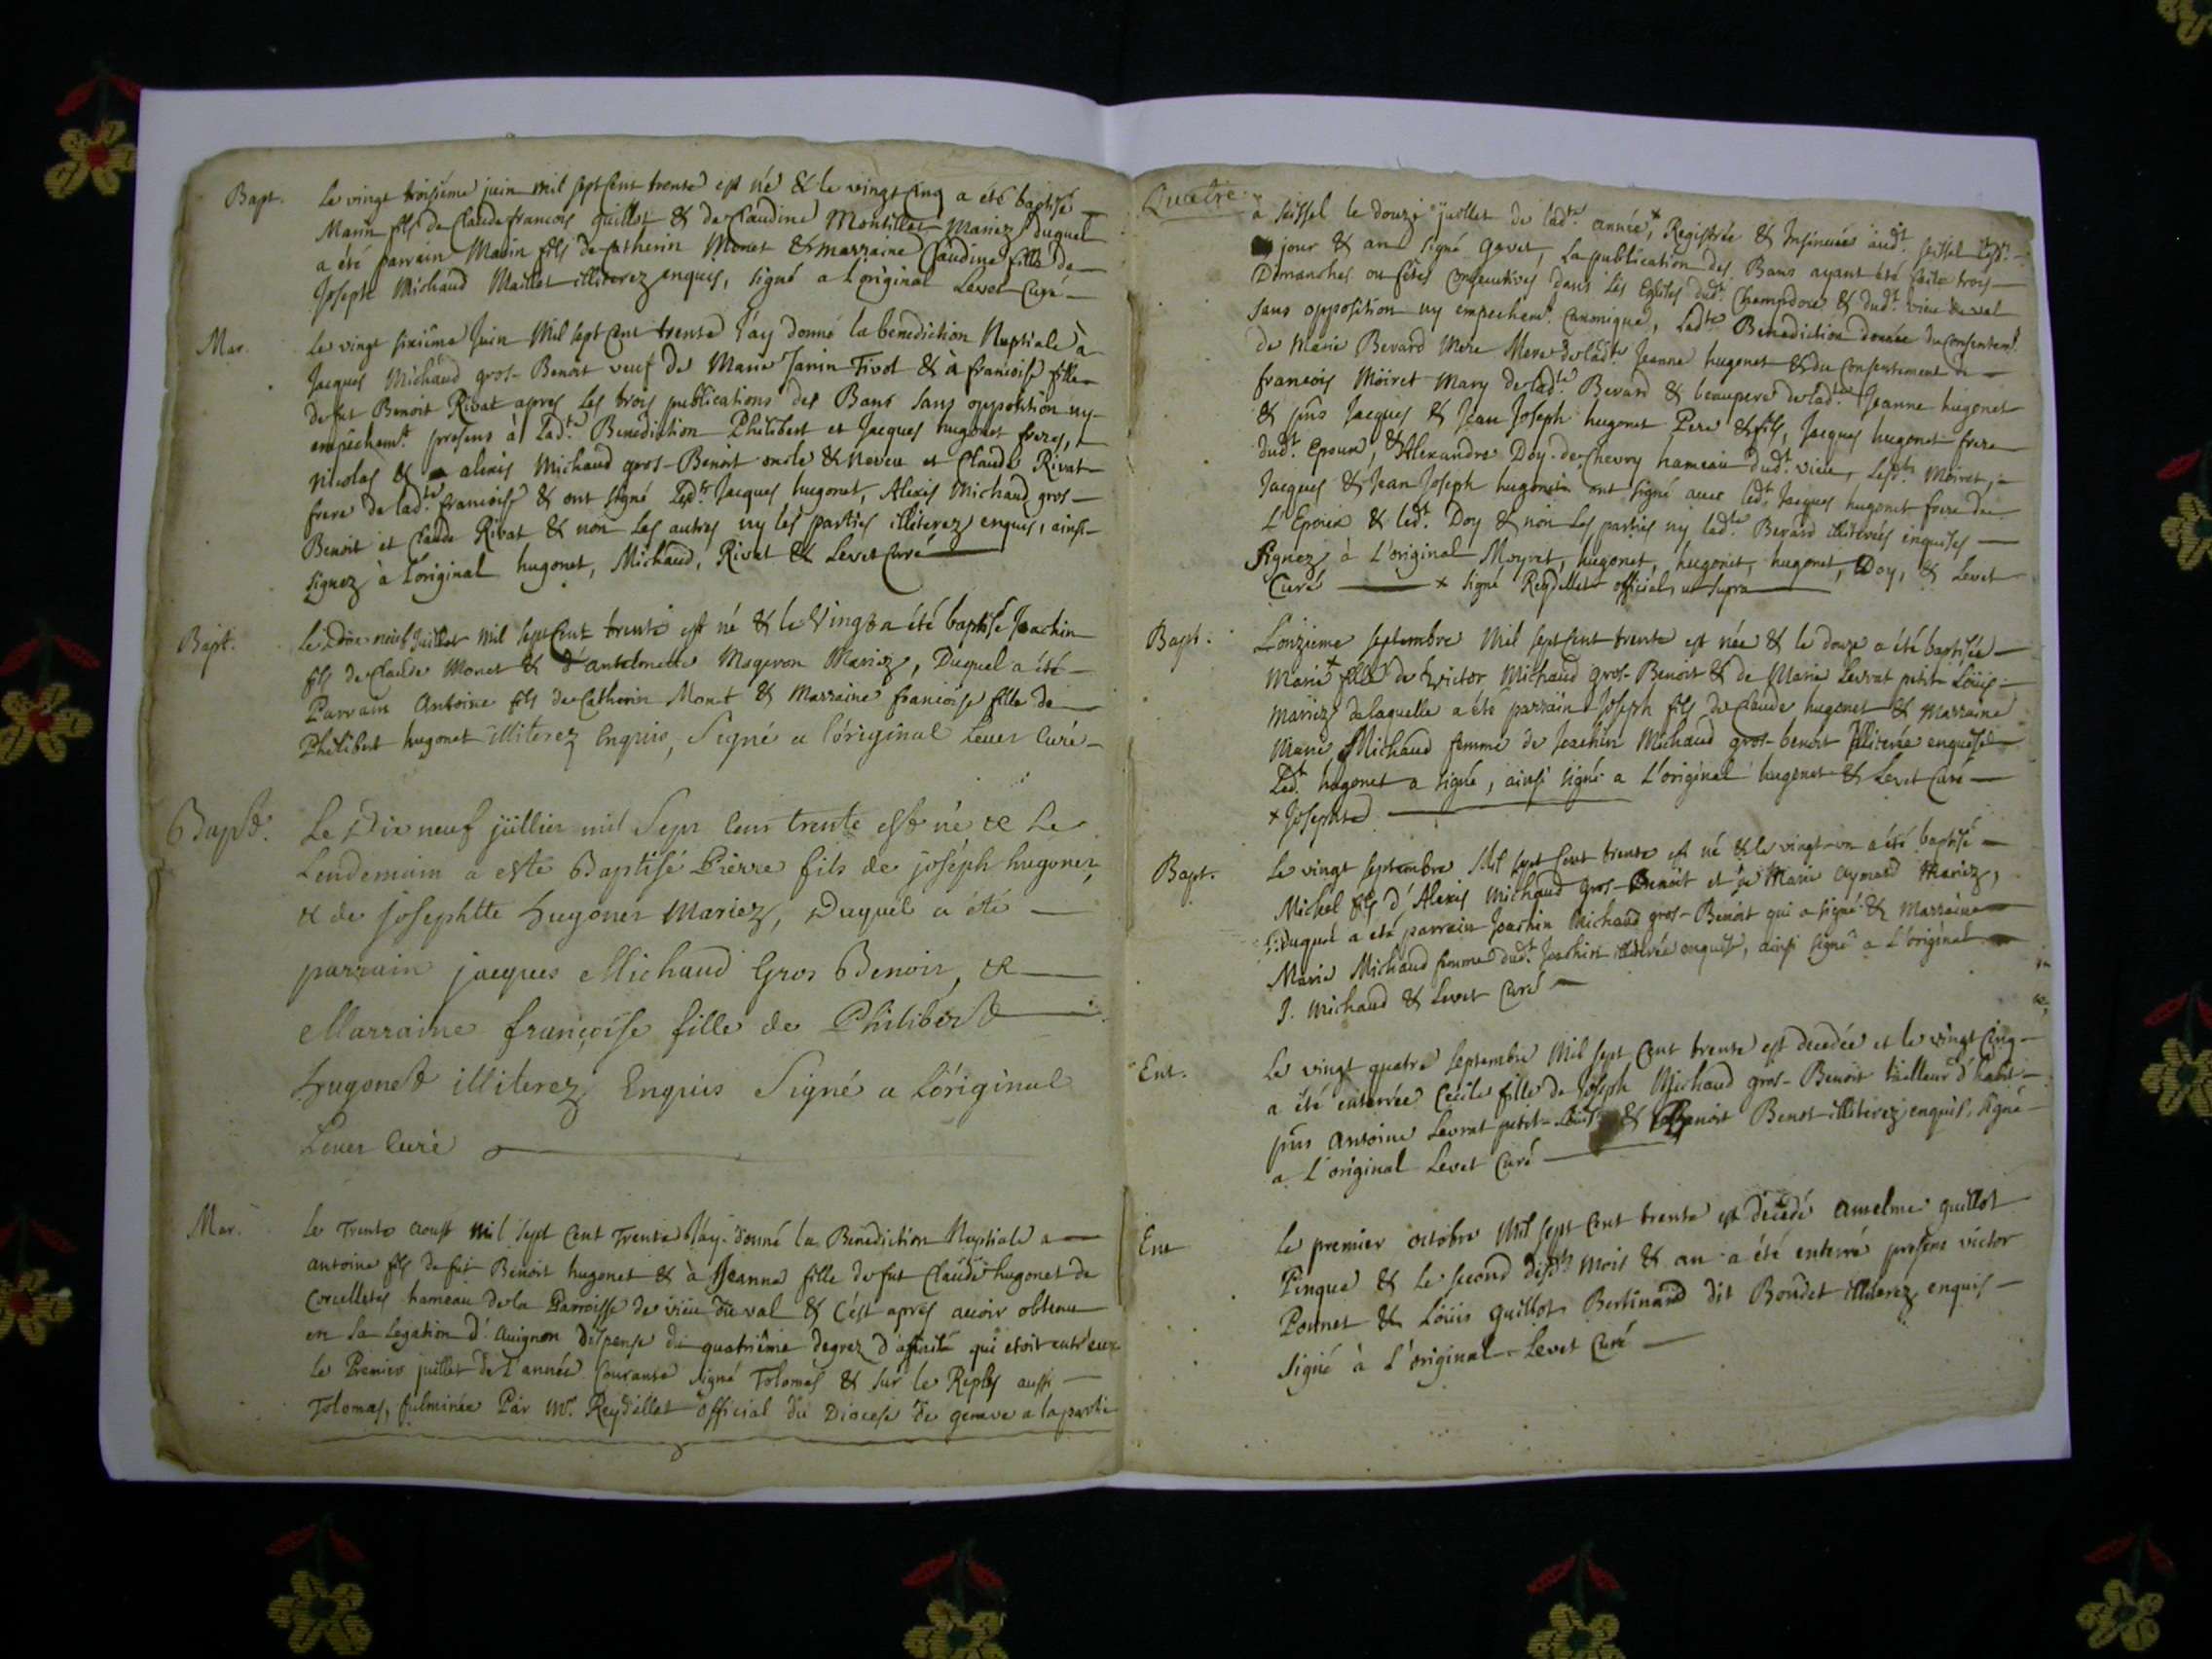 Bapt. Le vingt troisiéme juin mil sept cent trente est né & le vingt cinq a été baptisé
Marin fils de Claude francois guillot & de Claudine Montillet Mariez duquel
a été parrain Marin fils de Catherin Monet & marraine Claudine fille de
Joseph Michaud Maillet illiterez enquis, signé a l'original Levet Curé
Mar. Le vingt sixiéme Juin Mil sept Cent trente J'ay donné la benediction Nuptiale à
Jacques Michaud gros-Benoit veuf de Marie Janin-Tivol & à francoise fille
de fut Benoit Rivat apres les trois publications des Bans sans opposition ny
empêchemt. presens à Ladte. Benediction Philibert et Jacques hugonet freres,
Nicolas & alexis Michaud gros-Benoit oncle & Neveu et Claude Rivat
frere de ladte. francoise & ont signé Ledt. Jacques hugonet, Alexis Michaud gros-
Benoit et Claude Rivat & non les autres ny les parties illiterez enquis, ainsi
signez à l'original hugonet, Michaud, Rivat & Levet Curé
Bapt. Le dix-neuf Juillet mil sept Cent trente est né & le Vingt a été baptisé Joachin
fils de Claude Monet & d'antelmette Mageron Mariez, Duquel a été
Parrain Antoine fils de Catherin Monet & Marraine francoise fille de
Philibert hugonet illiterez Enquis, Signé a l'original Levet Curé
Bapt. Le Dix neuf jüllier mil Sept Cent trente est né & Le
Lendemain a este Baptisé Pierre fils de joséph hugonet
& de josephtte hugonet Mariez, Duquel a été
parrain jacques Michaud Gros Benoit, &
Marraine françoise fille de Philibert
hugonet illiterez Enquis Signé a L'original
Levet Curé
Mar. Le Trente aoust mil sept Cent Trente J'ay donné la Benediction Nuptiale a
antoine fils de fut Benoit hugonet & à Jeanne fille de fut Claude hugonet de
Corcelletes hameau de la Parroisse de vieu du val & C'est après avoir obtenu
en la Legation d'Avignon dispense du quatriême degrez d'affinité qui etoit entr'eux
le Premier juillet de l'année Courante signé Tolomas & sur le Replis aussi
Tolomas, fulminée Par Mr. Reydellet official du Diocese de geneve a la partie
Quatre
a seissel le douze juillet de ladte. année,+ Registrée & Insinuées audt. seissel lesdts.
jour & an signé gavet, La publication des Bans ayant été faite trois
Dimanches ou fêtes Consecutives dans les Eglises dudt. Champdore & dudt. vieu du val
sans opposition ny empechemt. Canonique, Ladte. Benediction donnée du consentemt.
de Marie Bevard Mere de ladte. Jeanne hugonet & du Consentement de
francois Moiret Mary de ladte. Bevard & beaupere de ladte. Jeanne hugonet
& pñs Jacques & Jean Joseph hugonet Pere & fils, Jacques hugonet frere
dudt. Epoux, & Alexandre Doy de Chevry hameau dudt. vieu, Lesdts. Moiret,
Jacques & Jean Joseph hugonet ont signé avec ledt. Jacques hugonet frere de
L'Epoux & ledt. Doy & non les parties ny ladte. Bevard illiterées enquises
Signez à L'original Moyret, hugonet, hugonet, hugonet, Doy, & Levet
Curé + signé Reydellet official ut supra
Bapt. L'onzieme septembre Mil sept cent trente est née & le douze a été baptisée
Marie+ fille de Victor Michaud gros-Benoit & de Marie Levrat petit-Loüis
Mariez de laquelle a été parrain Joseph fils de Claude hugonet & Marraine
Marie Michaud femme de Joachin Michaud gros-benoit Illiterée enquise
Ledt. hugonet a signé, ainsi signé a L'original hugonet & Levet Curé
+ Josephte
Bapt. Le vingt septembre Mil sept Cent trente est né & le vingt-un a été baptisé
Michel fils d'Alexis Michaud gros-Benoit et de Marie Aymard Mariez,
Duquel a eté parrain Joachin Michaud gros-Benoit qui a signé & Marraine
Marie Michaud femme dudt. Joachin illiterée enquise, ainsi signé a L'original
J. Michaud & Levet Curé
Ent. Le vingt quatre septembre Mil sept Cent trente est decedée et le vingt Cinq
a été enterrée Cecile fille de Joseph Michaud gros-Benoit tailleur d'habit
pñs Antoine Levrat petit-Loüis & Benoit Benot illiterez enquis, signé
a L'original Levet Curé
Ent Le premier octobre Mil sept Cent trente est décédé Anselme guillot
Pinque & le second desdts. mois & an a été enterré presens victor
Ponnet & Loüis guillot Bertinand dit Boudet illiterez enquis
Signé à L'original Levet Curé